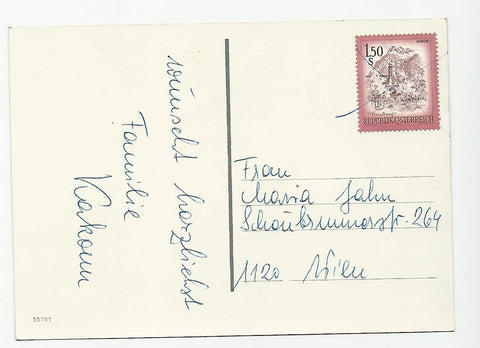 wünscht herzlichst
Familie
1.50
S
REPUBLIK ÖSTERREICH
Frau
Maria Jahn
Schönbrunnerstr. 264
1120 Wien
55781